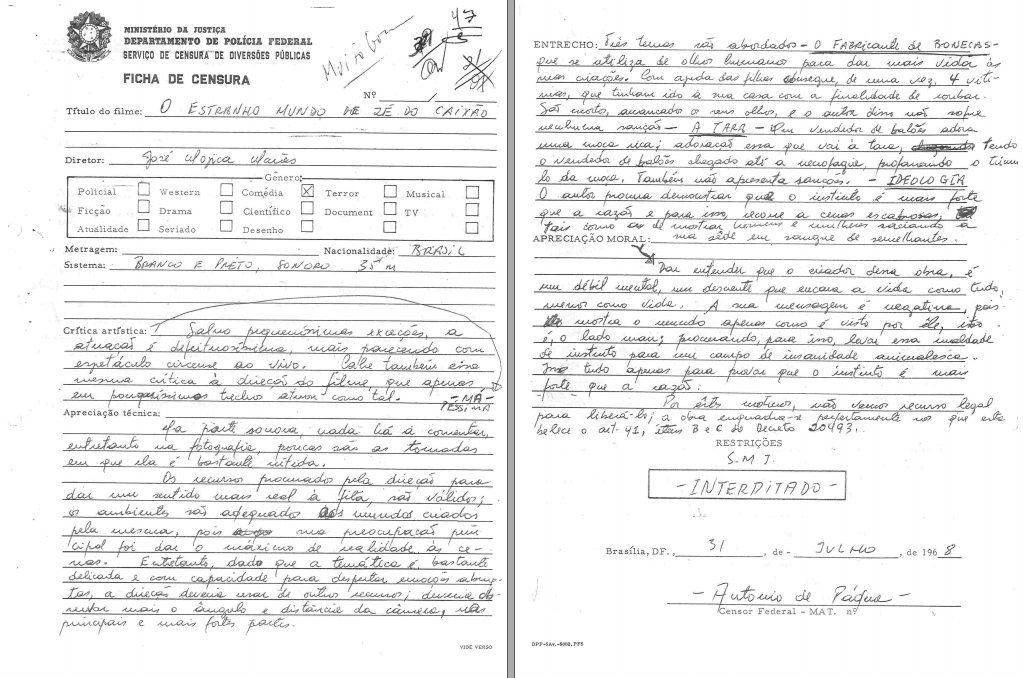 MINISTÉRIO DA JUSTIÇA
DEPARTAMENTO DE POLÍCIA FEDERAL
SERVIÇO DE CENSURA DE DIVERSÕES PÚBLICAS
FICHA DE CENSURA
Muito bom
47
Nº
Título do filme: O ESTRANHO MUNDO DE ZÉ DO CAIXÃO
Diretor: José Mojica Marins
Gênero:
Policial Western Comédia Terror Musical
Ficção Drama Científico Document TV
Atualidade Seriado Desenho
Metragem: Nacionalidade: BRASIL
Sistema: BRANCO E PRETO, SONORO 35 m
Crítica artística: Salvo pequeníssimas exceções, a
atuação é defeituosíssima, mais parecendo com
espetáculo circense ao vivo. Cabe também essa
mesma crítica à direção do filme, que apenas
em pouquíssimos trechos atuou como tal. - MÁ -
PÉSSIMA
Apreciação técnica:
Na parte sonora, nada há a comentar,
entretanto na fotografia, poucas são as tomadas
em que ela é bastante nítida.
Os recursos procurados pela direção para
dar um sentido mais real à fita, são válidos;
os ambientes são adequados aos mundos criados
pela mesma, pois sua preocupação prin-
cipal foi dar o máximo de realidade às ce-
nas. Entretanto, dado que a temática é bastante
delicada e com capacidade para despertar emoções abrup-
tas, a direção deveria usar de outros recursos; deveria ob-
servar mais o ângulo e distância da câmera, nas
principais e mais fortes partes.
VIDE VERSO
ENTRECHO: Três temas são abordados - O FABRICANTE DE BONECAS -
que se utiliza de olhos humanos para dar mais vida às
suas criações. Com ajuda das filhas consegue, de uma vez, 4 víti-
mas, que tinham ido à sua casa com a finalidade de roubar.
São mortos, arrancados os seus olhos, e o autor disso não sofre
nenhuma sanção - A TARA - Um vendedor de balões adora
uma moça rica; adoração essa que vai à tara, tendo
o vendedor de balões chegado até a necrofagia, profanando o túmu-
lo da moça. Também não apresenta sanções. - IDEOLOGIA
O autor procura demonstrar que o instinto é mais forte
que a razão e para isso, recorre a cenas escabrosas,
tais como as de mostrar homens e mulheres saciando a
APRECIAÇÃO MORAL: sua sêde em sangue de semelhantes.
Dar entender que o criador dessa obra, é
um débil mental, um descrente que encara a vida como tudo,
menos como vida. A sua mensagem é negativa, pois
mostra o mundo apenas como é visto por êle, isto
é, o lado mau; procurando, para isso, levar essa maldade
de instinto para um campo de insanidade animalesca.
Isso tudo apenas para provar que o instinto é mais
forte que a razão.
Por êstes motivos, não vemos recurso legal
para liberá-lo; a obra enquadra-se perfeitamente no que esta
belece o art-41, itens B e C do Decreto 20493.
RESTRIÇÕES
S.M.J.
- INTERDITADO -
Brasília, DF., 31, de - JULHO, de 1968
- Antonio de Pádua -
Censor Federal - MAT. nº
DPF-SAv.-6002.PFS